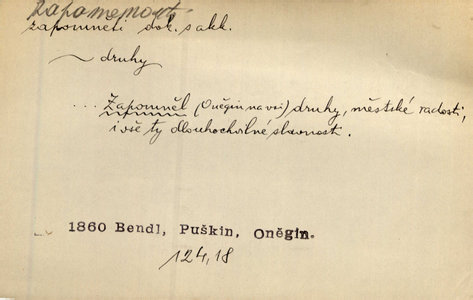 zapomenouti
zapomněti dok. s akk.
~ druhy
... Zapomněl (Oněgin na vsi) druhy, městské radosti,
i vše ty dlouhochvilné slavnosti.
1860 Bendl, Puškin, Oněgin.
124,18